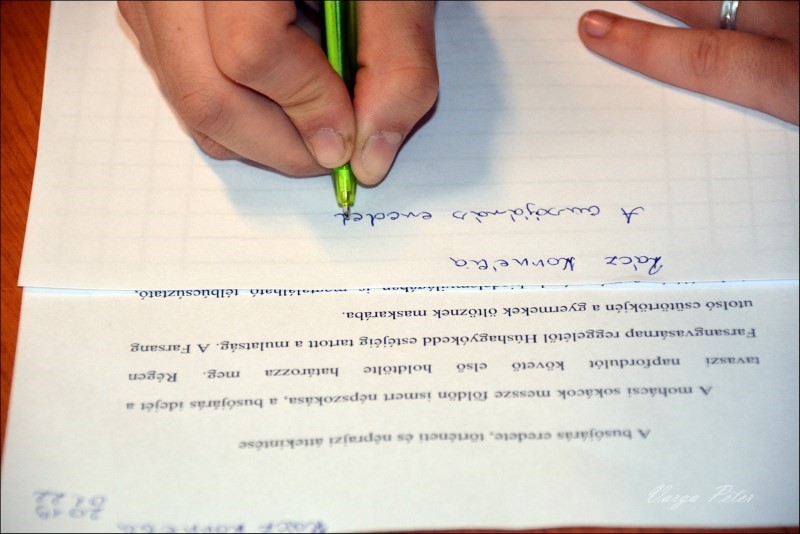 Rácz Kornélia
2019
A busójárás eredete, történeti és néprajzi áttekintése
A mohácsi sokácok messze földön ismert népszokása, a busójárás idejét a
tavaszi napfordulót követő első holdtölte határozza meg. Régen
Farsangvasárnap reggelétől Húshagyókedd estéjéig tartott a mulatság. A Farsang
utolsó csütörtökjén a gyermekek öltöznek maskarába.
is megtalálható télbúcsúztató,
Rácz Kornélia
A busójárás eredet
Varga Péter